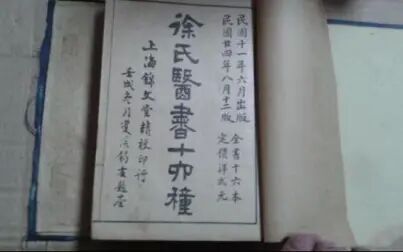 民國十一年六月出版
民國廿四年八月十二版
全書十六本
定價洋弍元
徐氏醫書十六種
上海錦文堂精校印行
壬戌冬月